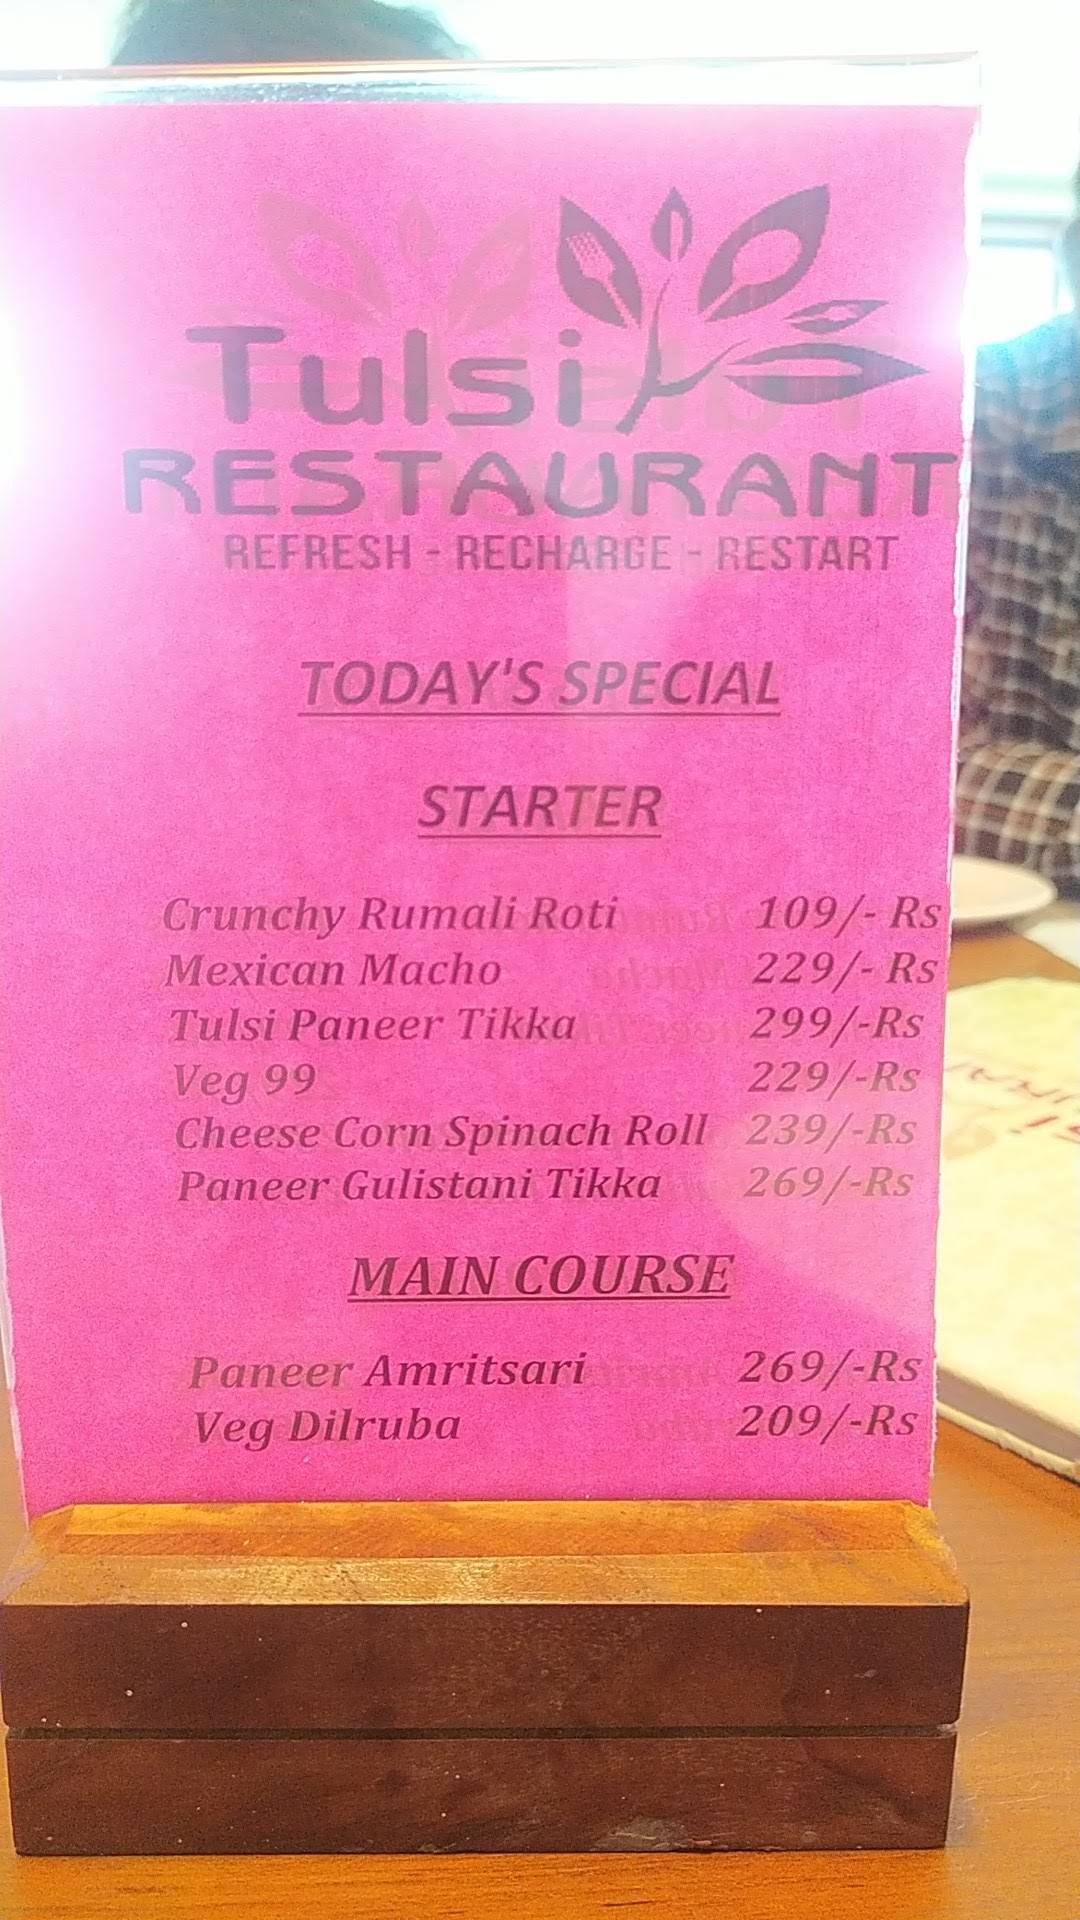 Tulsi
RESTAURANT
REFRESH - RECHARGE - RESTART
TODAY'S SPECIAL
STARTER
Crunchy Rumali Roti 109/- Rs
Mexican Macho 229/- Rs
Tulsi Paneer Tikka 299/-Rs
Veg 99 229/-Rs
Cheese Corn Spinach Roll 239/-Rs
Paneer Gulistani Tikka 269/-Rs
MAIN COURSE
Paneer Amritsari 269/-Rs
Veg Dilruba 209/-Rs